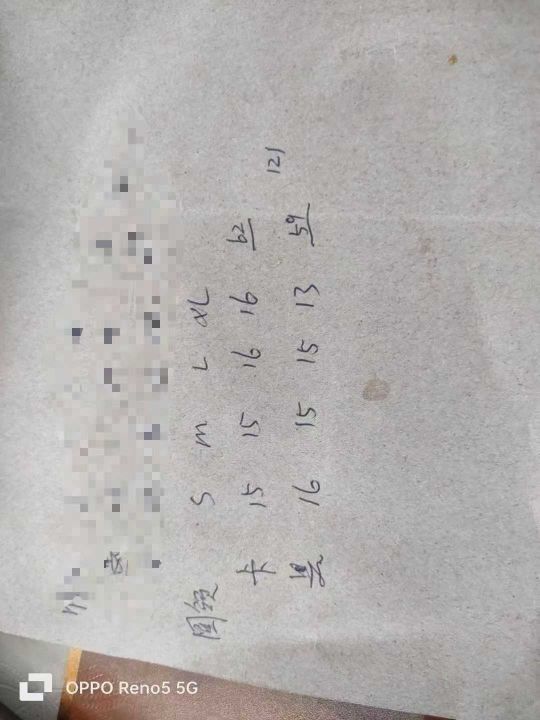 圆领 S m L XL
卡 15 15 16 16 62
黑 16 15 15 13 59
121
OPPO Reno5 5G